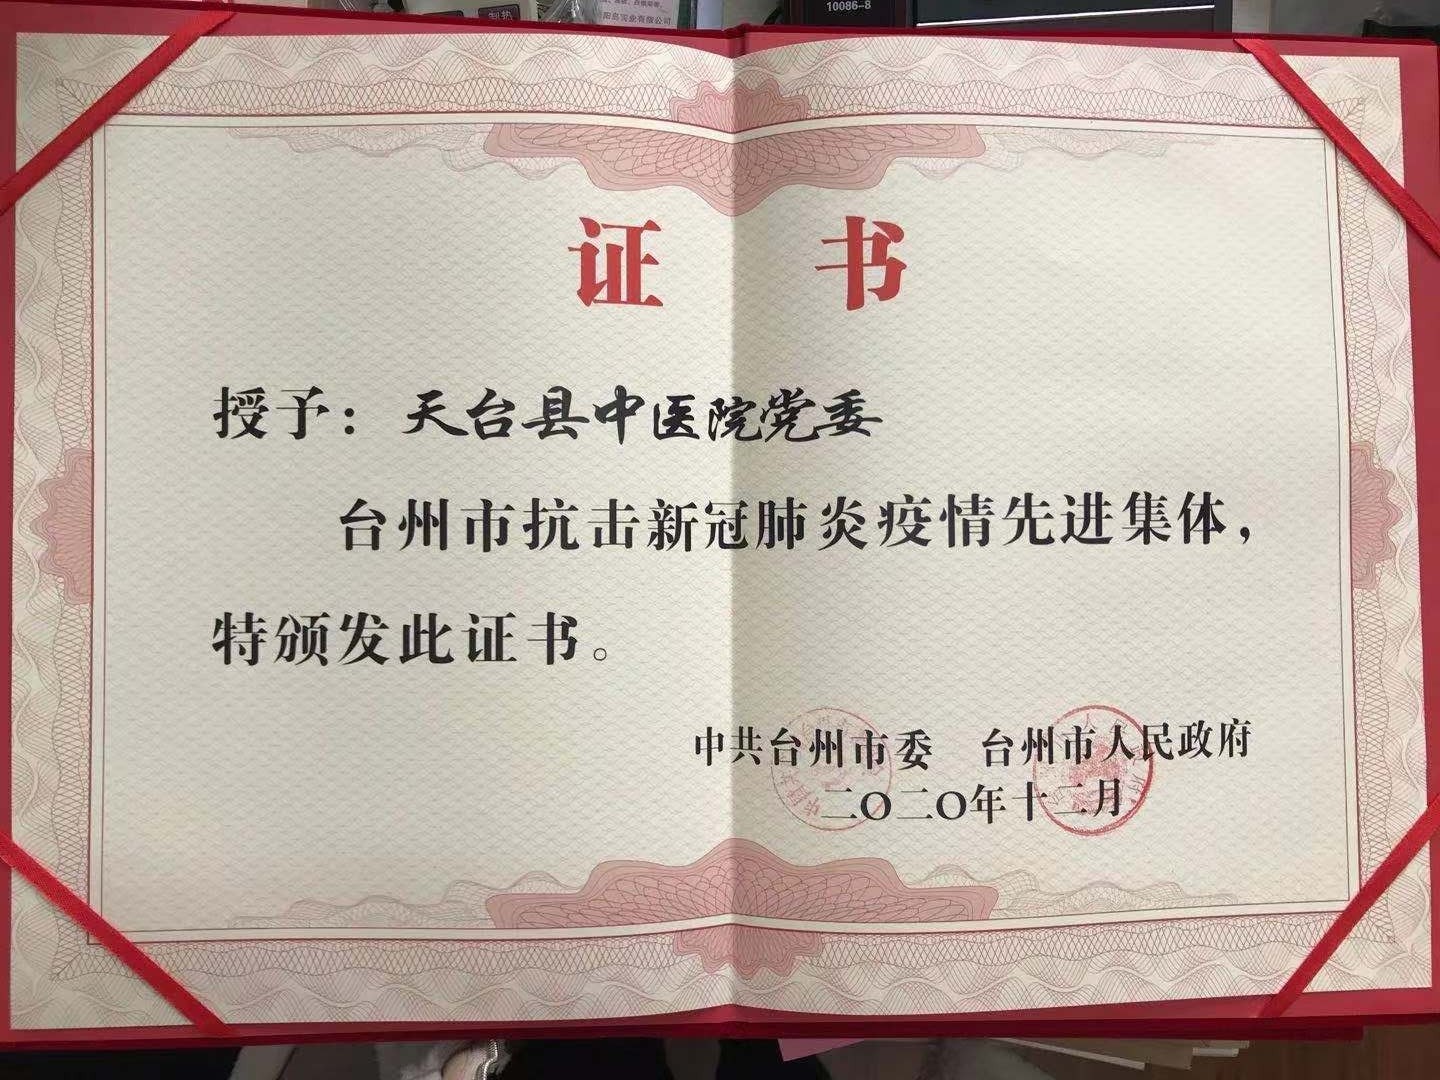 制热
阳岛实业有限公司
10086-8
证书
授予：天台县中医院党委
台州市抗击新冠肺炎疫情先进集体，
特颁发此证书。
中共台州市委 台州市人民政府
二〇二〇年十二月